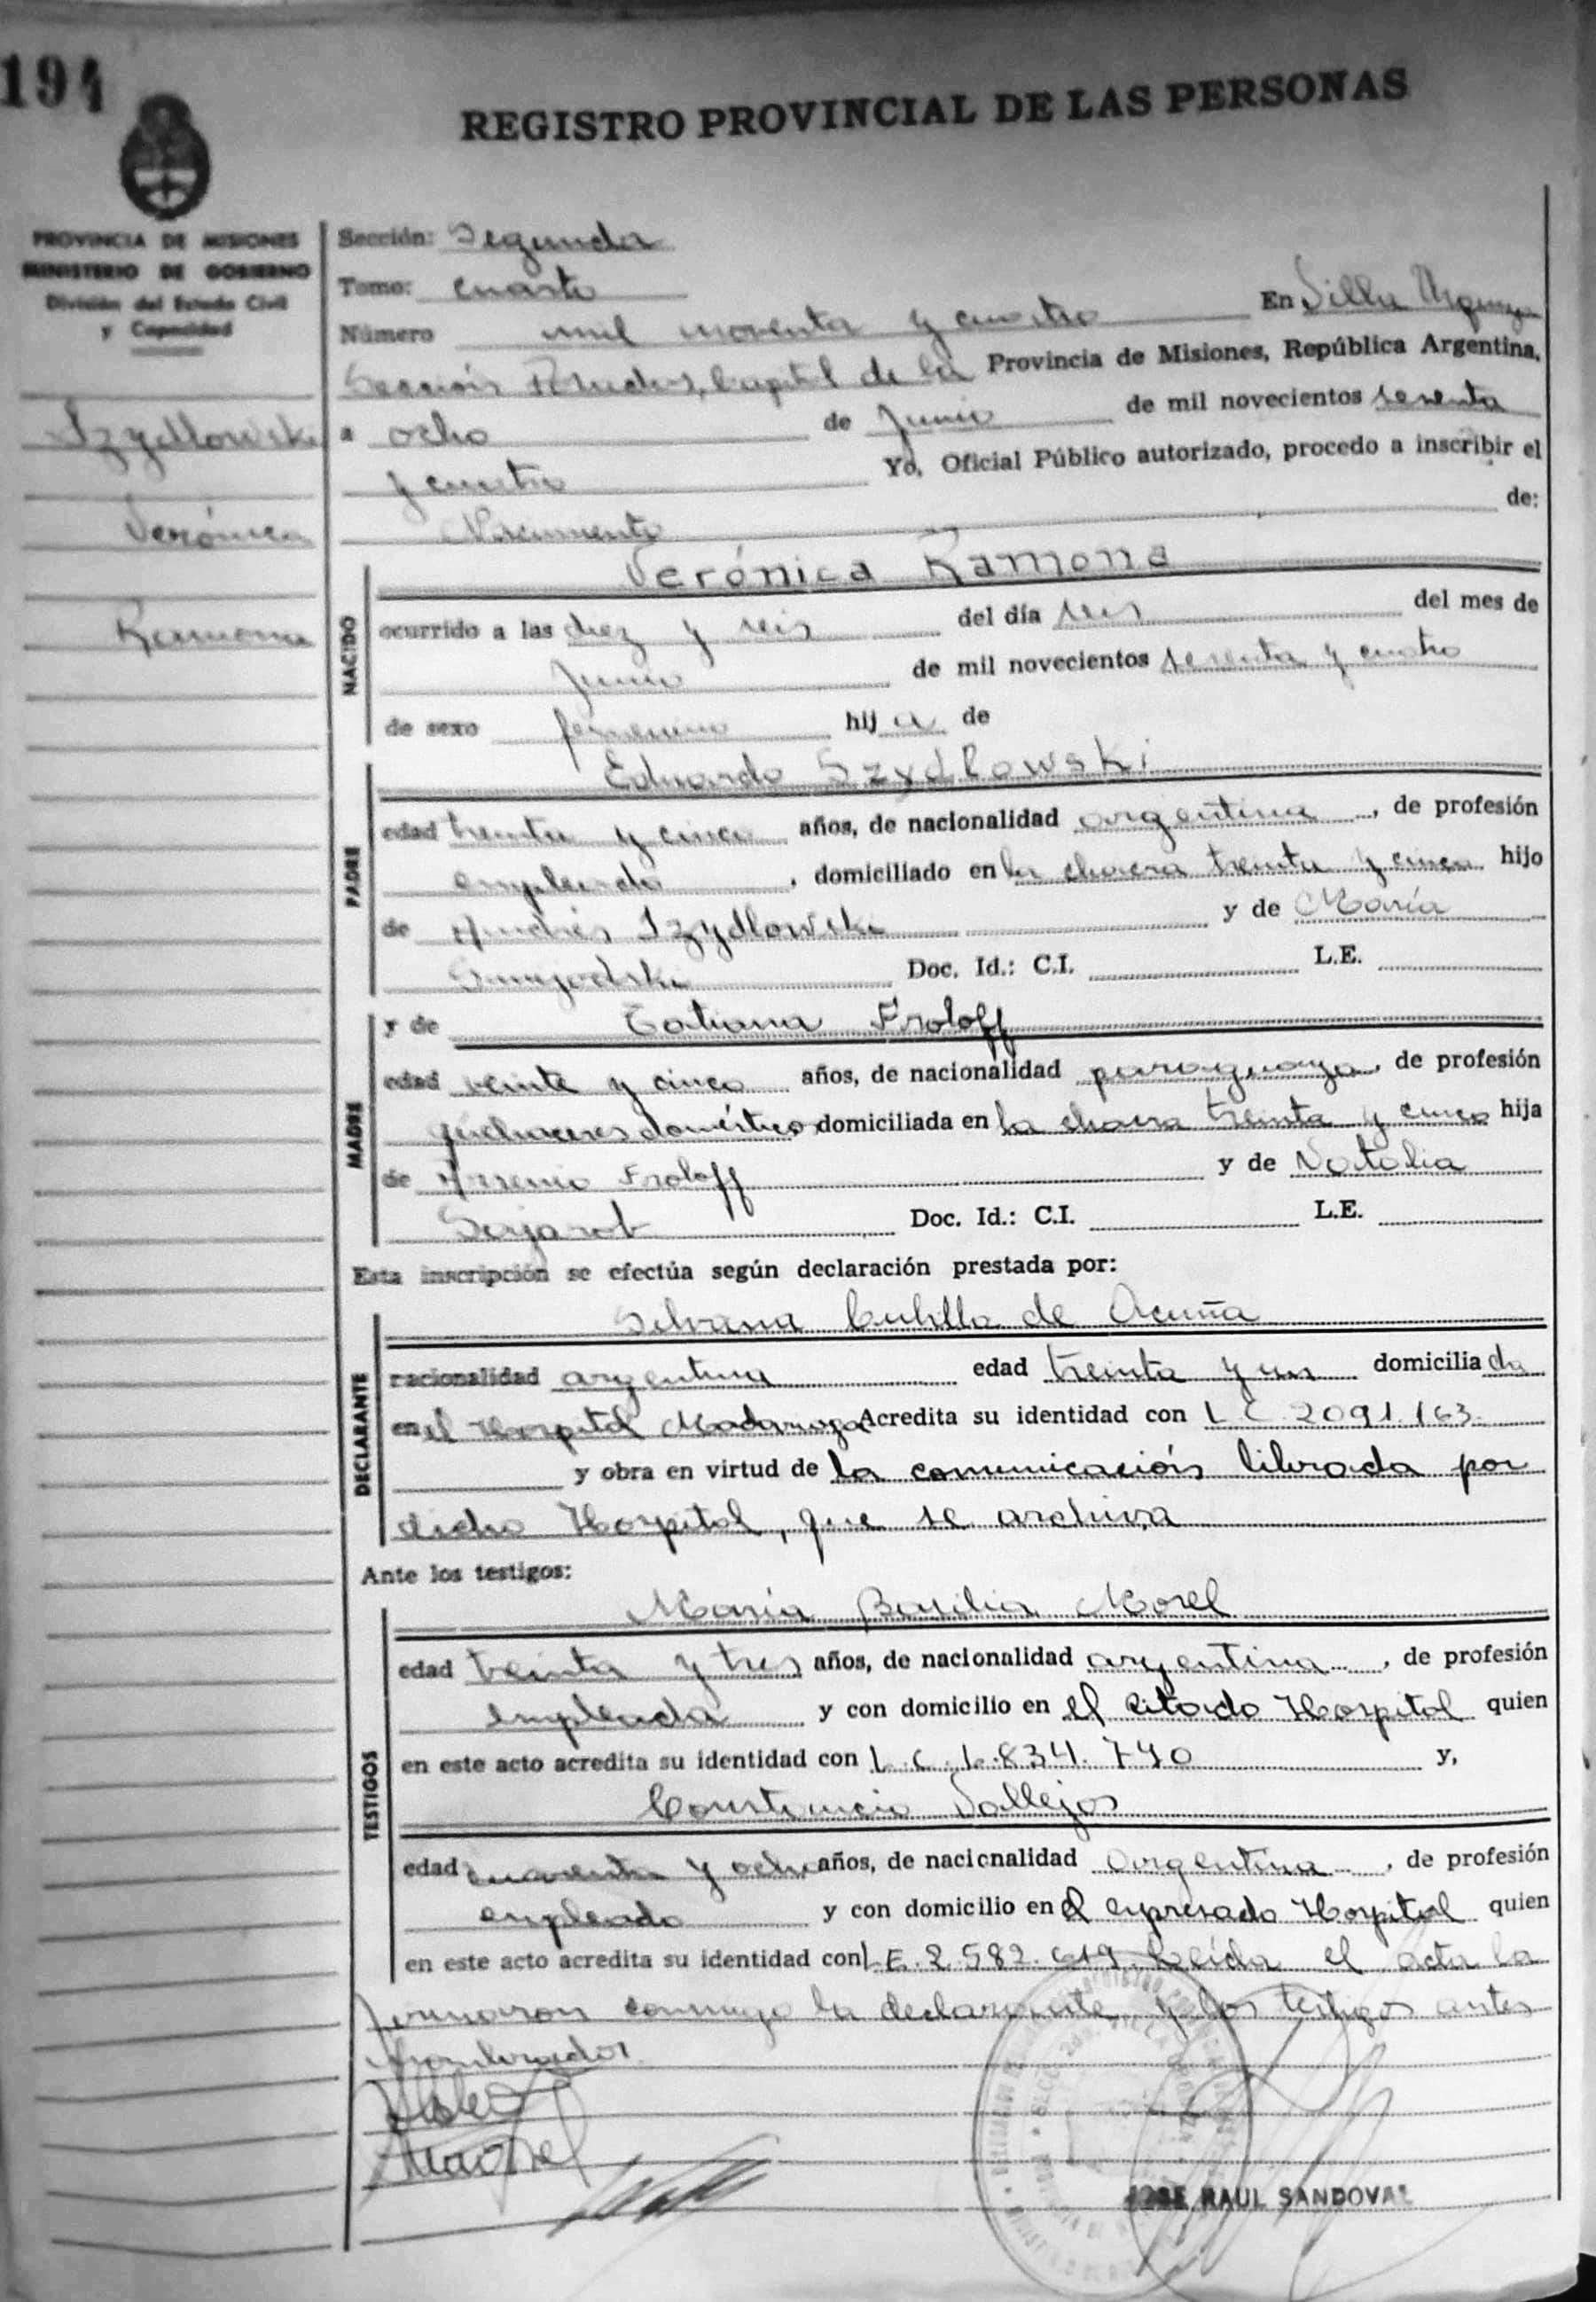 194
REGISTRO PROVINCIAL DE LAS PERSONAS
PROVINCIA DE MISIONES
MINISTERIO DE GOBIERNO
División del Estado Civil
y Capacidad
Szydlowski
Verónica
Ramona
Sección: Segunda
Tomo: cuarto
Número mil noventa y cuatro En Villa Urquiza
Sección Posadas, Capital de la Provincia de Misiones, República Argentina,
a ocho de Junio de mil novecientos sesenta
y cuatro Yo, Oficial Público autorizado, procedo a inscribir el
Nacimiento de:
NACIDO
Verónica Ramona
ocurrido a las diez y seis del día seis del mes de
Junio de mil novecientos sesenta y cuatro
de sexo femenino hij a de
PADRE
Eduardo Szydlowski
edad treinta y cinco años, de nacionalidad argentina, de profesión
empleado, domiciliado en la chacra treinta y cinco hijo
de Andrés Szydlowski y de María
Doc. Id.: C.I. L.E.
MADRE
y de Tatiana Froloff
edad veinte y cinco años, de nacionalidad paraguaya, de profesión
quehaceres domésticos domiciliada en la chacra treinta y cinco hija
de Arsenio Froloff y de Natalia
Doc. Id.: C.I. L.E.
Esta inscripción se efectúa según declaración prestada por:
DECLARANTE
de Acuña
nacionalidad argentina edad treinta y un domicilia da
en el Hospital Madariaga Acredita su identidad con L C 2091.163.
y obra en virtud de la comunicación librada por
dicho Hospital, que se archiva
Ante los testigos:
TESTIGOS
María Basilia Morel
edad treinta y tres años, de nacionalidad argentina, de profesión
empleada y con domicilio en el citado Hospital quien
en este acto acredita su identidad con L.C. y,
Constancio Vallejos
edad cuarenta y ocho años, de nacionalidad argentina, de profesión
empleado y con domicilio en el expresado Hospital quien
en este acto acredita su identidad con L.E. 2.582.619. Leída el acta la
firmaron conmigo la declarante y los testigos antes
nombrados.
JOSE RAUL SANDOVAL